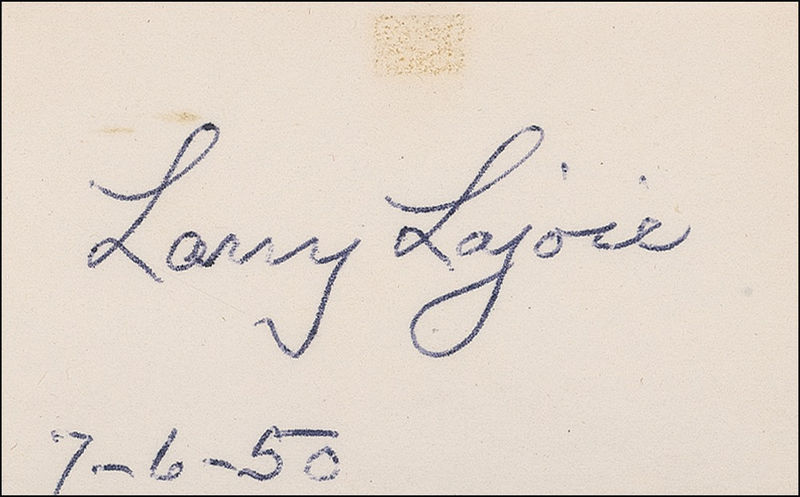 Larry Lajoie
7-6-50